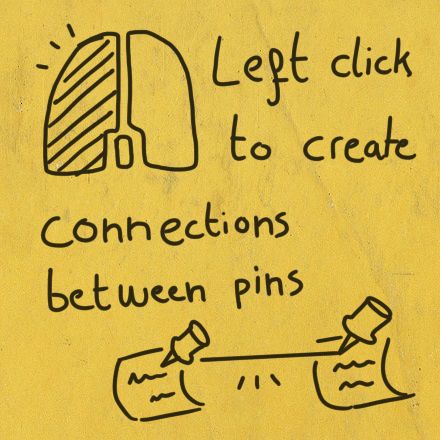 Left click
to create
connections
between pins